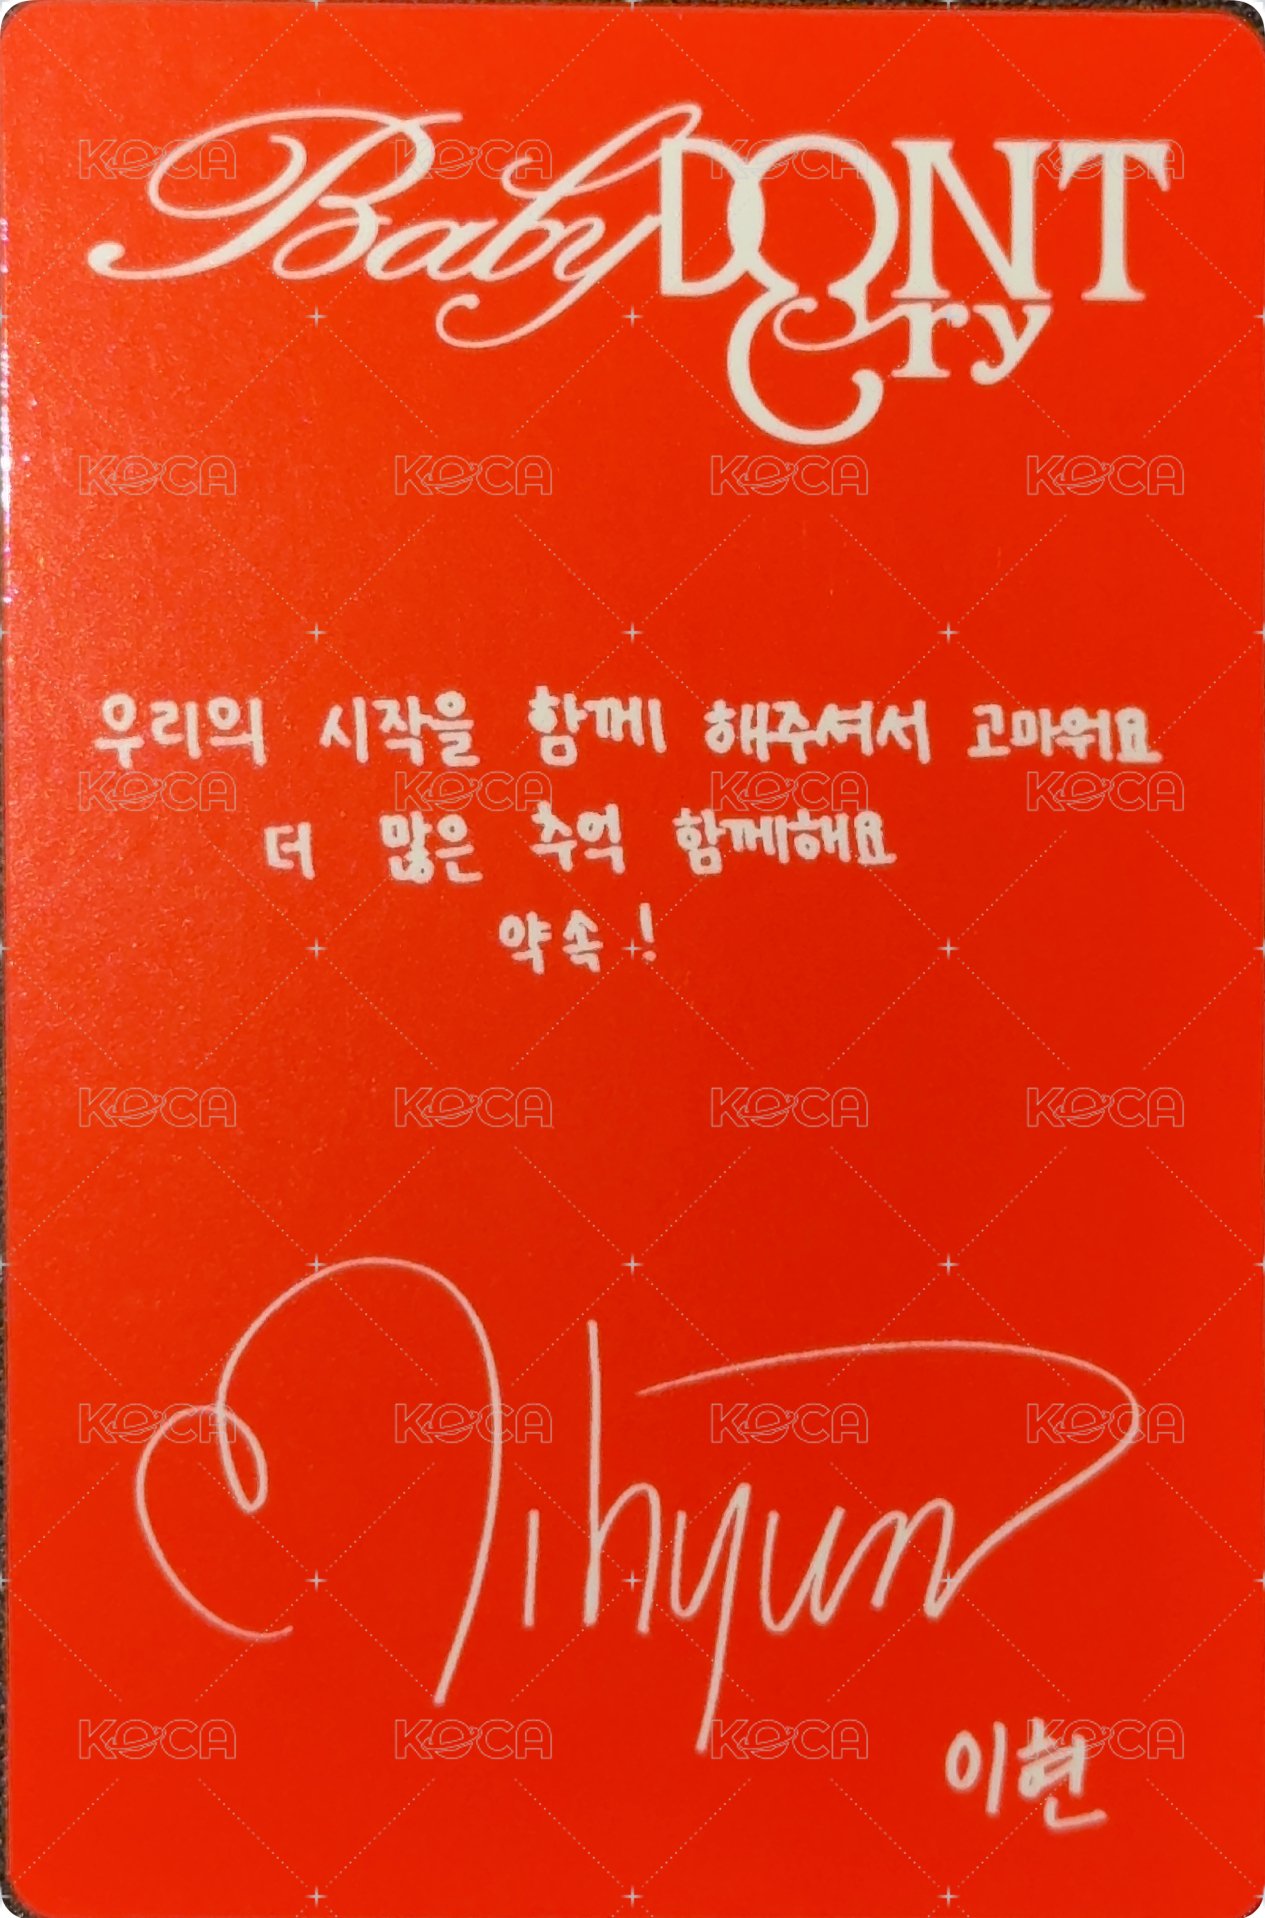 Baby DONT Cry
우리의 시작을 함께 해주셔서 고마워요
더 많은 추억 함께해요
약속!
Yihyun
이현
KOCA